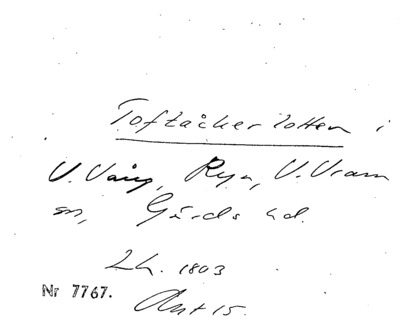 Toftåkerlotten i
V. Vång, Ryn, V. Vram
sn, Gärds hd.
Lh. 1803
Nr 7767.
Ant 15.